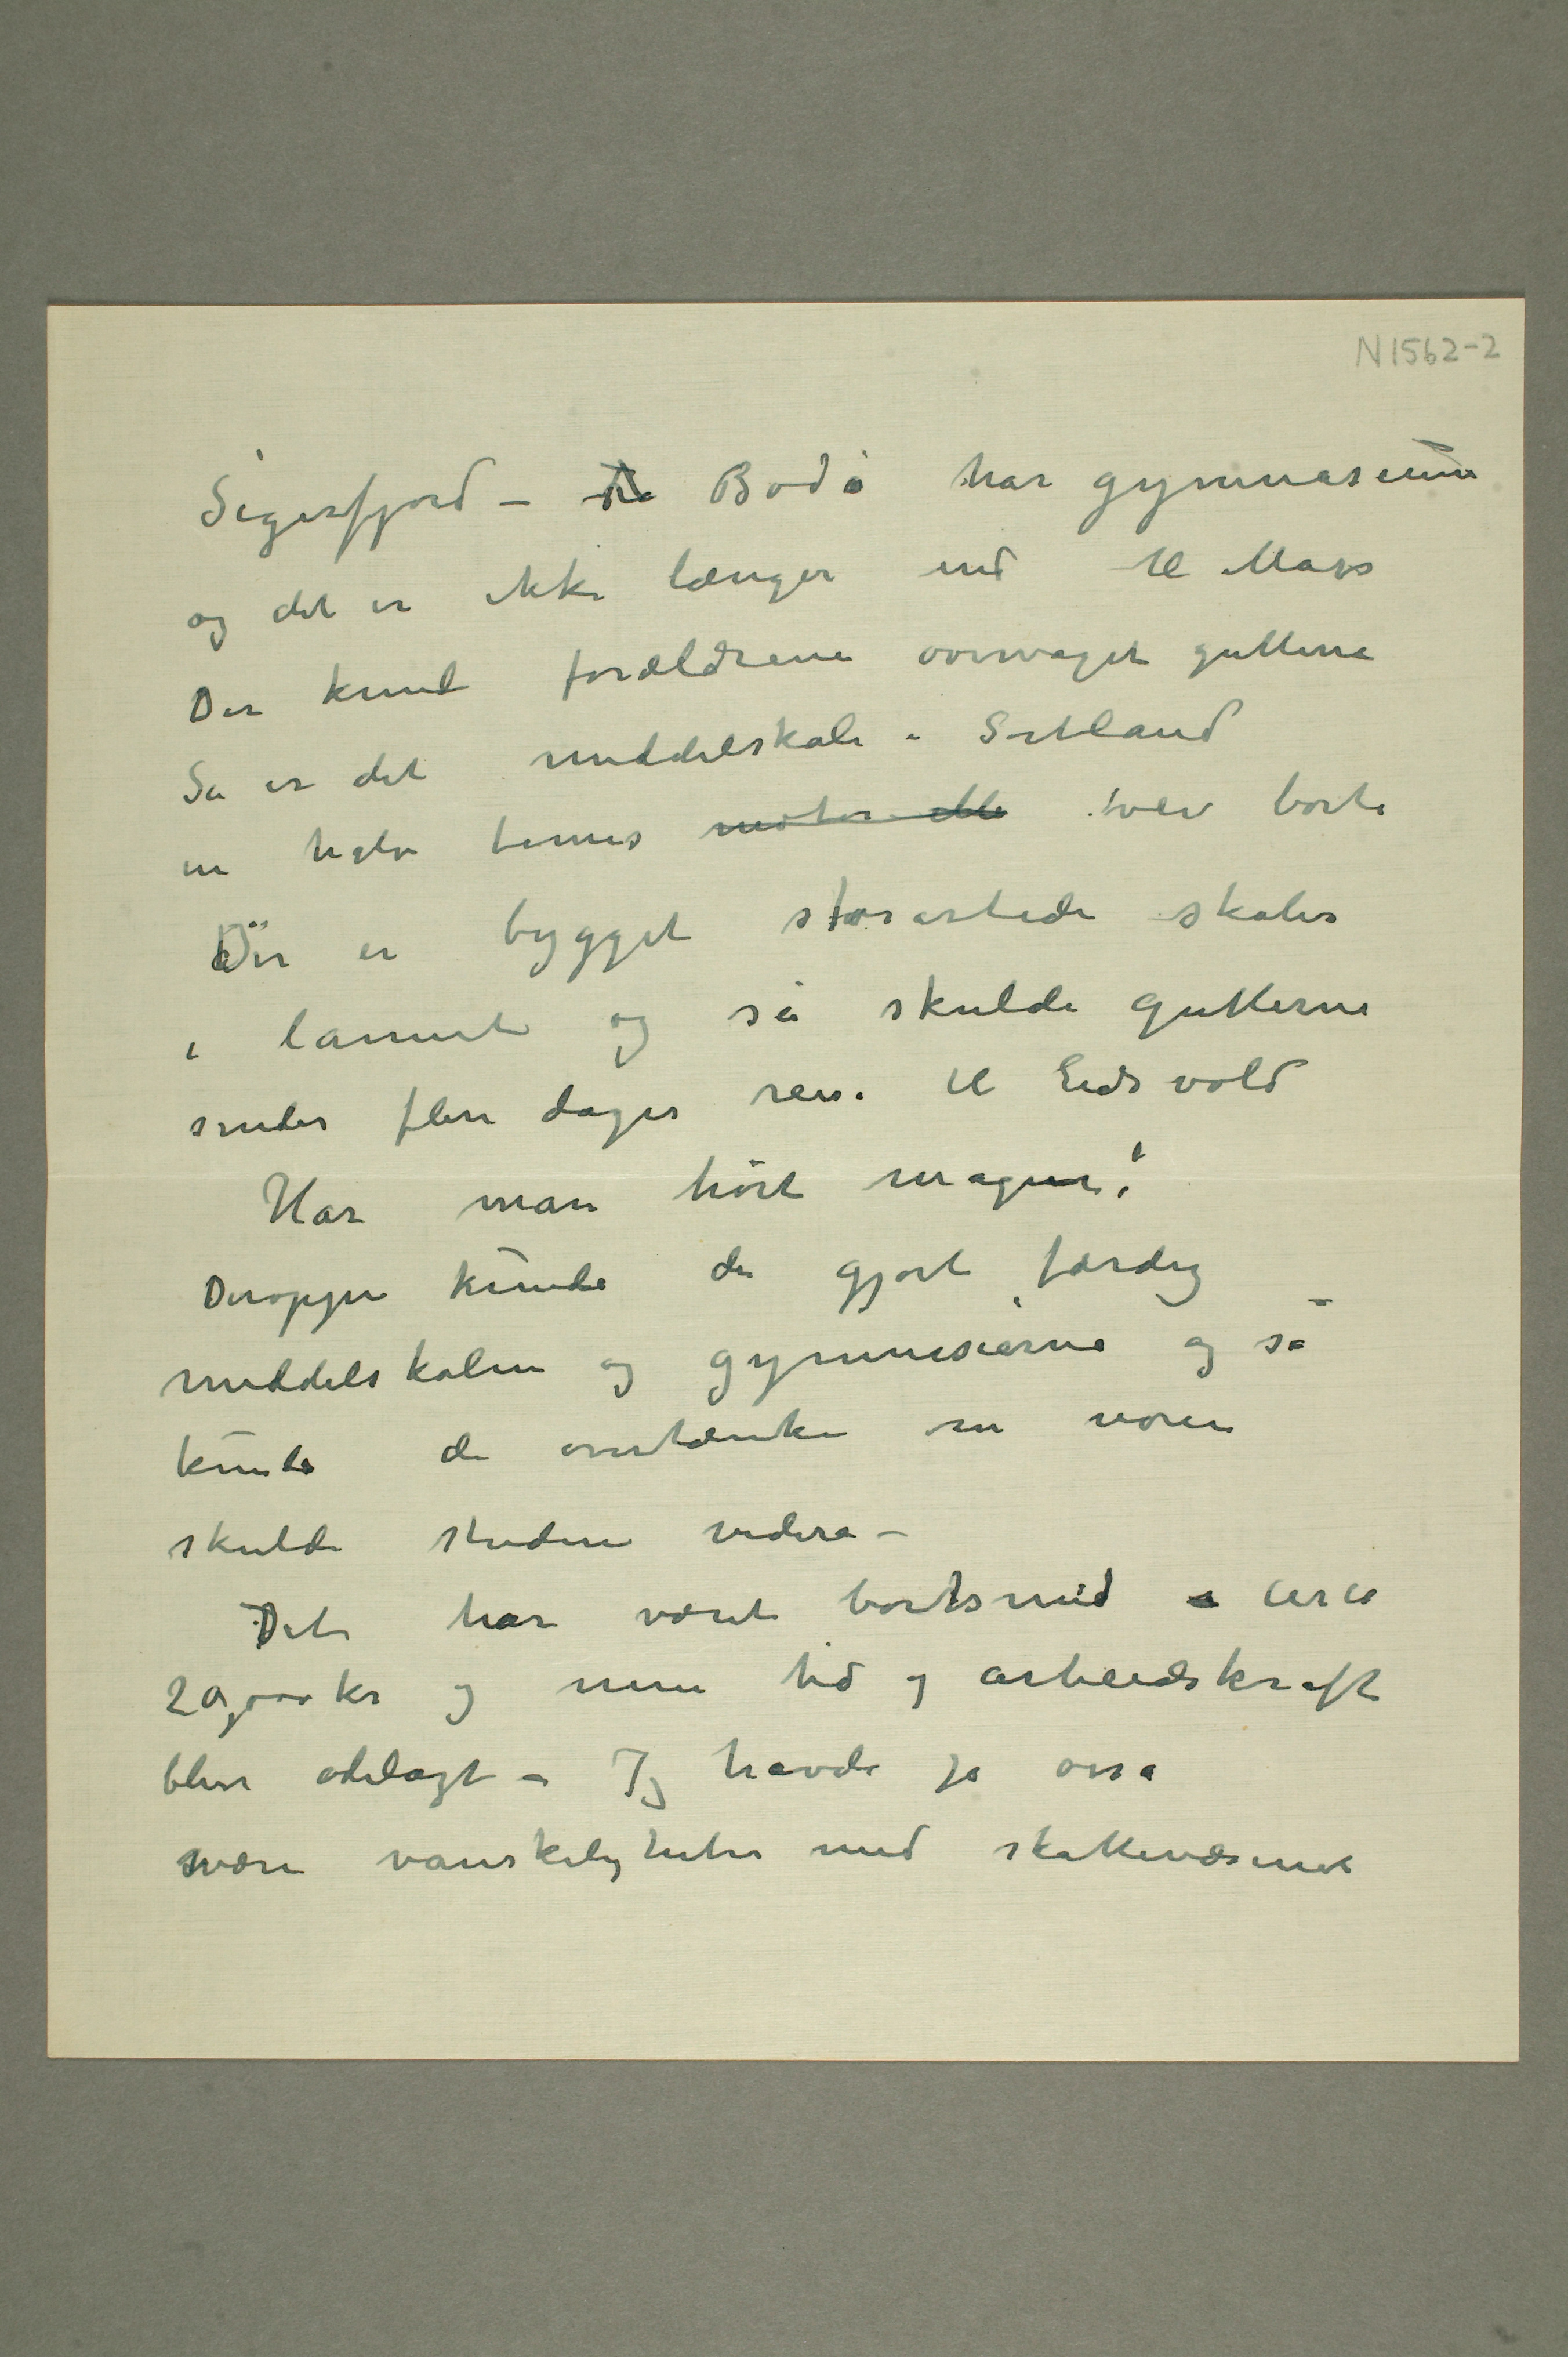 N1562-2
Sigerfjord – Bodø har gymnasium
og det er ikke længer end til Moss
Der kunde forældrene overvaget guttene
Så er det middelskole i Sortland
en halv times vei borte
Der er bygget storartede skoler
i lannet og så skulde gutterne
sendes flere dages reise til Eidsvold
Har man hørt magen!
Deroppe kunde de gjort færdig
middelskolen og gymnasierne og så
kunde de overtænke om noen
skulde studere videre –
Det har været bortsmid circa
20,000 kr og min tid og arbeidskraft
blev ødelagt – Jeg havde jo osså
svære vanskeligheter med skattevæsenet